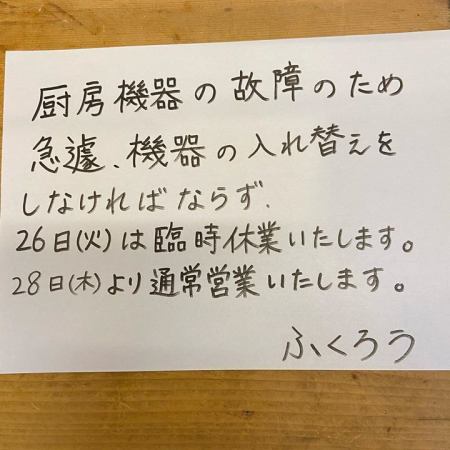 厨房機器の故障のため
急遽、機器の入れ替えを
しなければならず、
26日(火)は臨時休業いたします。
28日(木)より通常営業いたします。
ふくろう